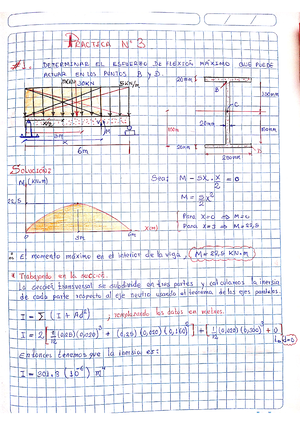 PRACTICA N° 3
#1.
DETERMINAR EL ESFUERZO DE FLEXIÓN MÁXIMO QUE PUEDE
ACTUAR EN LOS PUNTOS B y D.
30KN
5KN/m
3m
x
6m
20mm
B
C
20mm
150mm
20mm
D
200mm
SOLUCION:
M (KN.m)
22,5
0
3m
6m
X(m)
Sea:
= 0
Para x=0 ⇒ M=0
Para x=3 ⇒ M=22,5
∴ El momento máximo en el interior de la viga, M=22,5 KN.m
* Trabajando en la sección.
La sección transversal se subdivide en tres partes y calculamos la inercia
de cada parte respecto al eje neutro usando el teorema de los ejes paralelos.
I = Σ (I + Ad²), remplazando los datos en metros.
I = 2[1/12 (0,25)(0,020)³ + (0,25)(0,020)(0,160)²] + [1/12 (0,020)(0,300)³ + 0]
d=0
Entonces tenemos que la inercia es:
I = 301,3 (10⁻⁶) m⁴